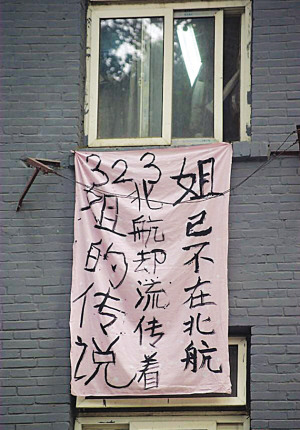 姐已不在北航
北航却流传着
姐的传说
323